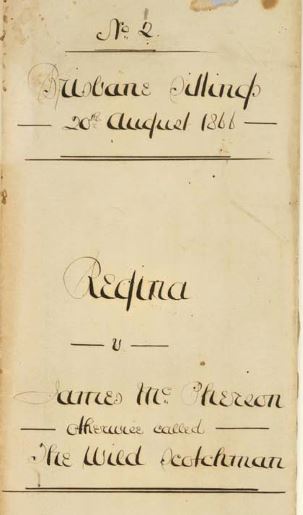 No. 2.
Brisbane Sittings
— 20th August 1866 —
Regina
— v —
James Mc. Pherson
— otherwise called —
The Wild Scotchman